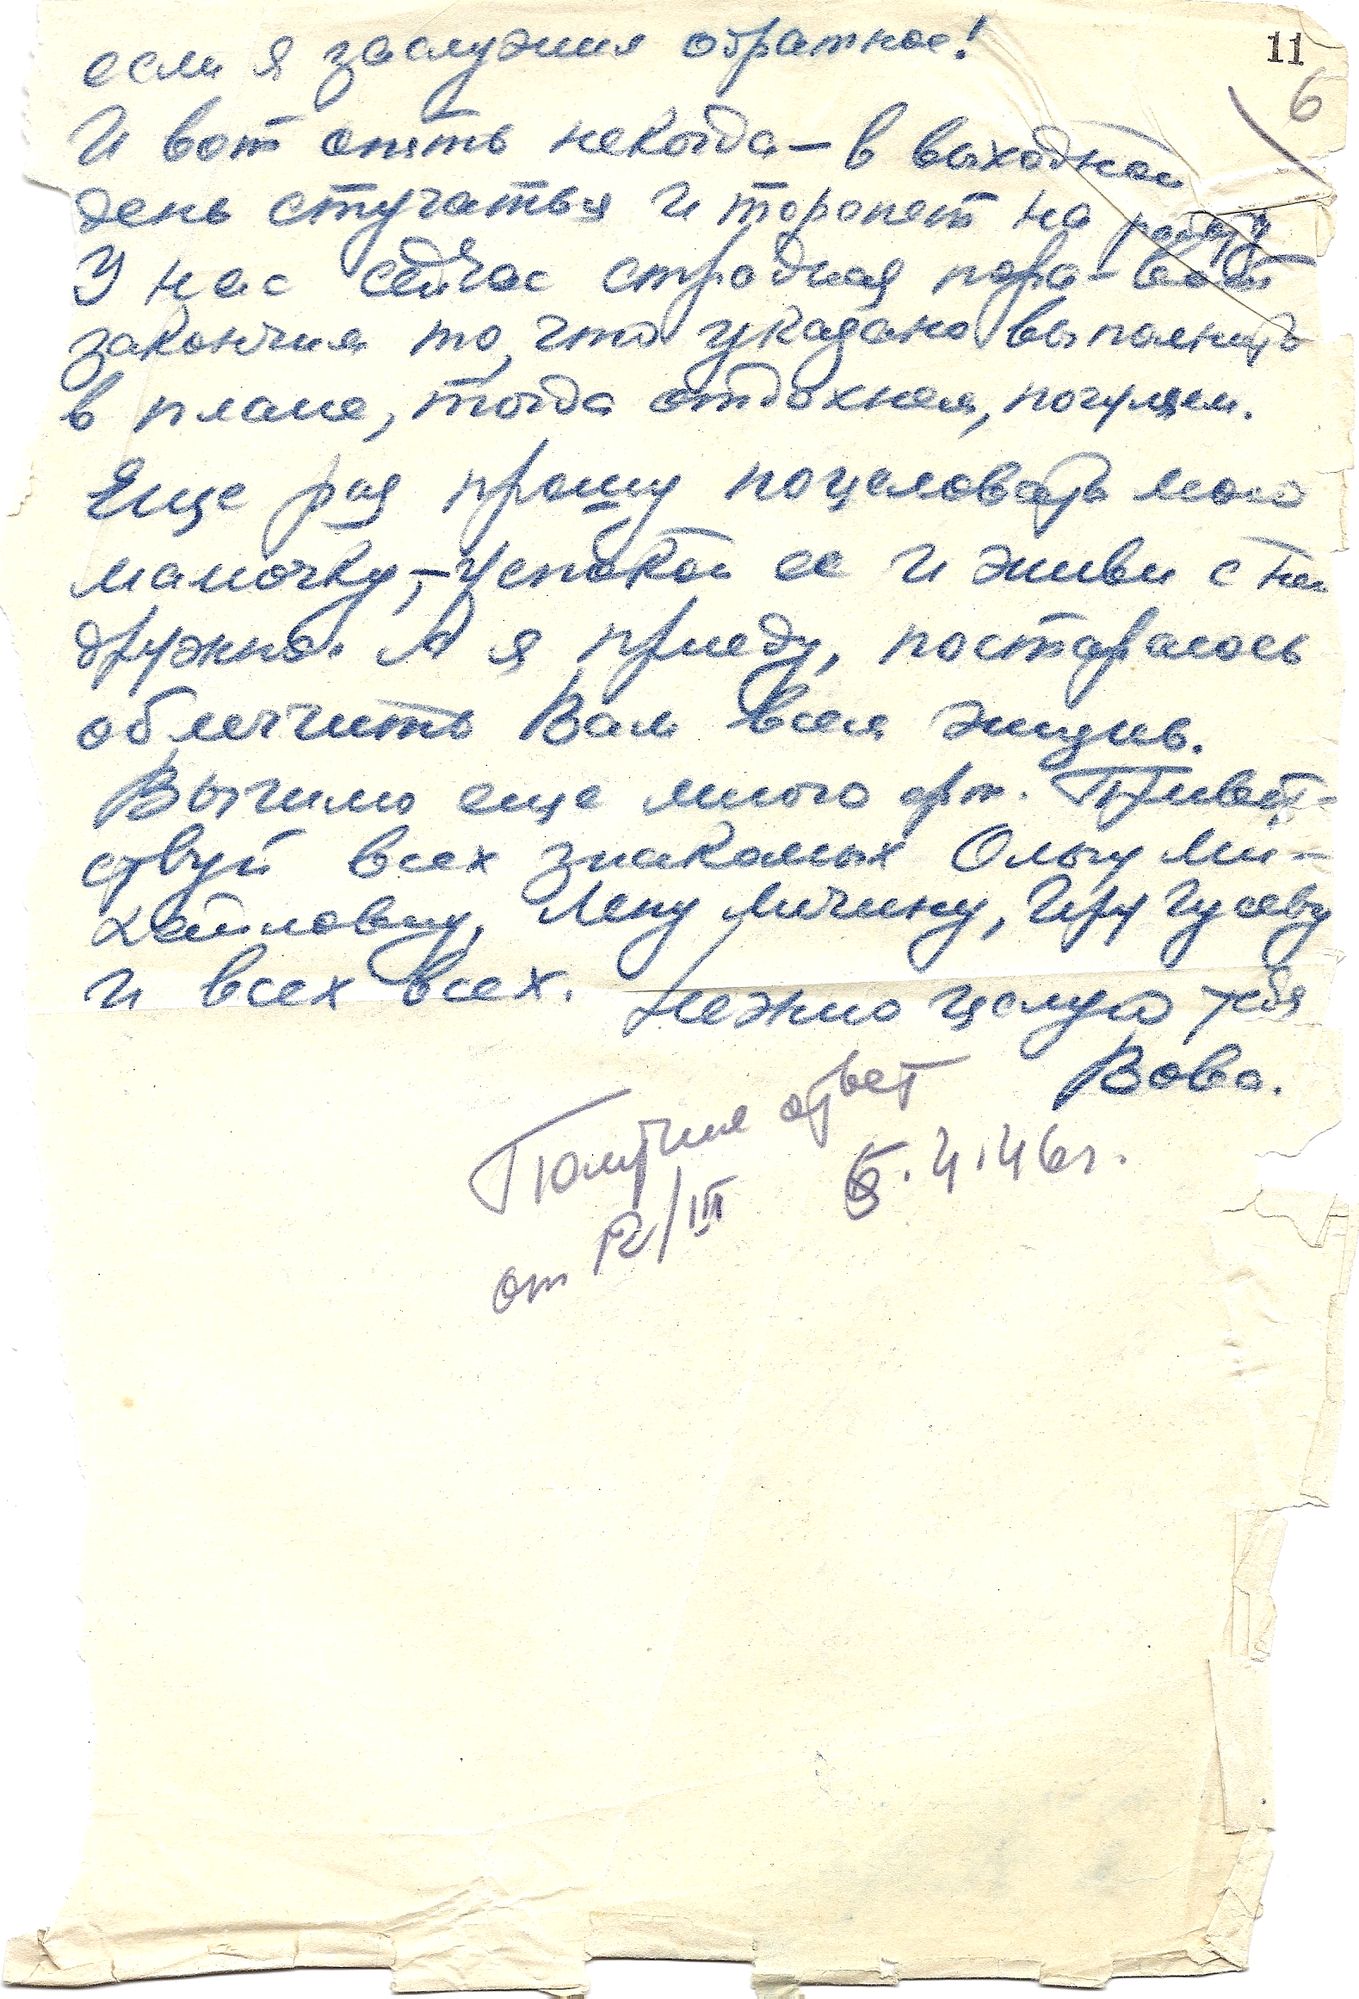 11
6
если я заслужил обратное!
И вот опять некогда – в выходной
день стучаться и торопят на работу
У нас сейчас страдная пора – вот
закончим то, что указано выполнить
в плане, тогда отдохнем, погуляем.
Еще раз прошу поцеловать мою
мамочку, – успокой ее и живи с ней
дружно. А я приеду, постараюсь
облегчить Вам всем жизнь.
Вышлю еще много фот. Привет-
ствуй всех знакомых Ольгу Ми-
хайловну, Лену Мичину, Иру Гусеву
и всех всех. Нежно целую тебя
Вова.
Получил ответ
от 12/III 5.4.46г.